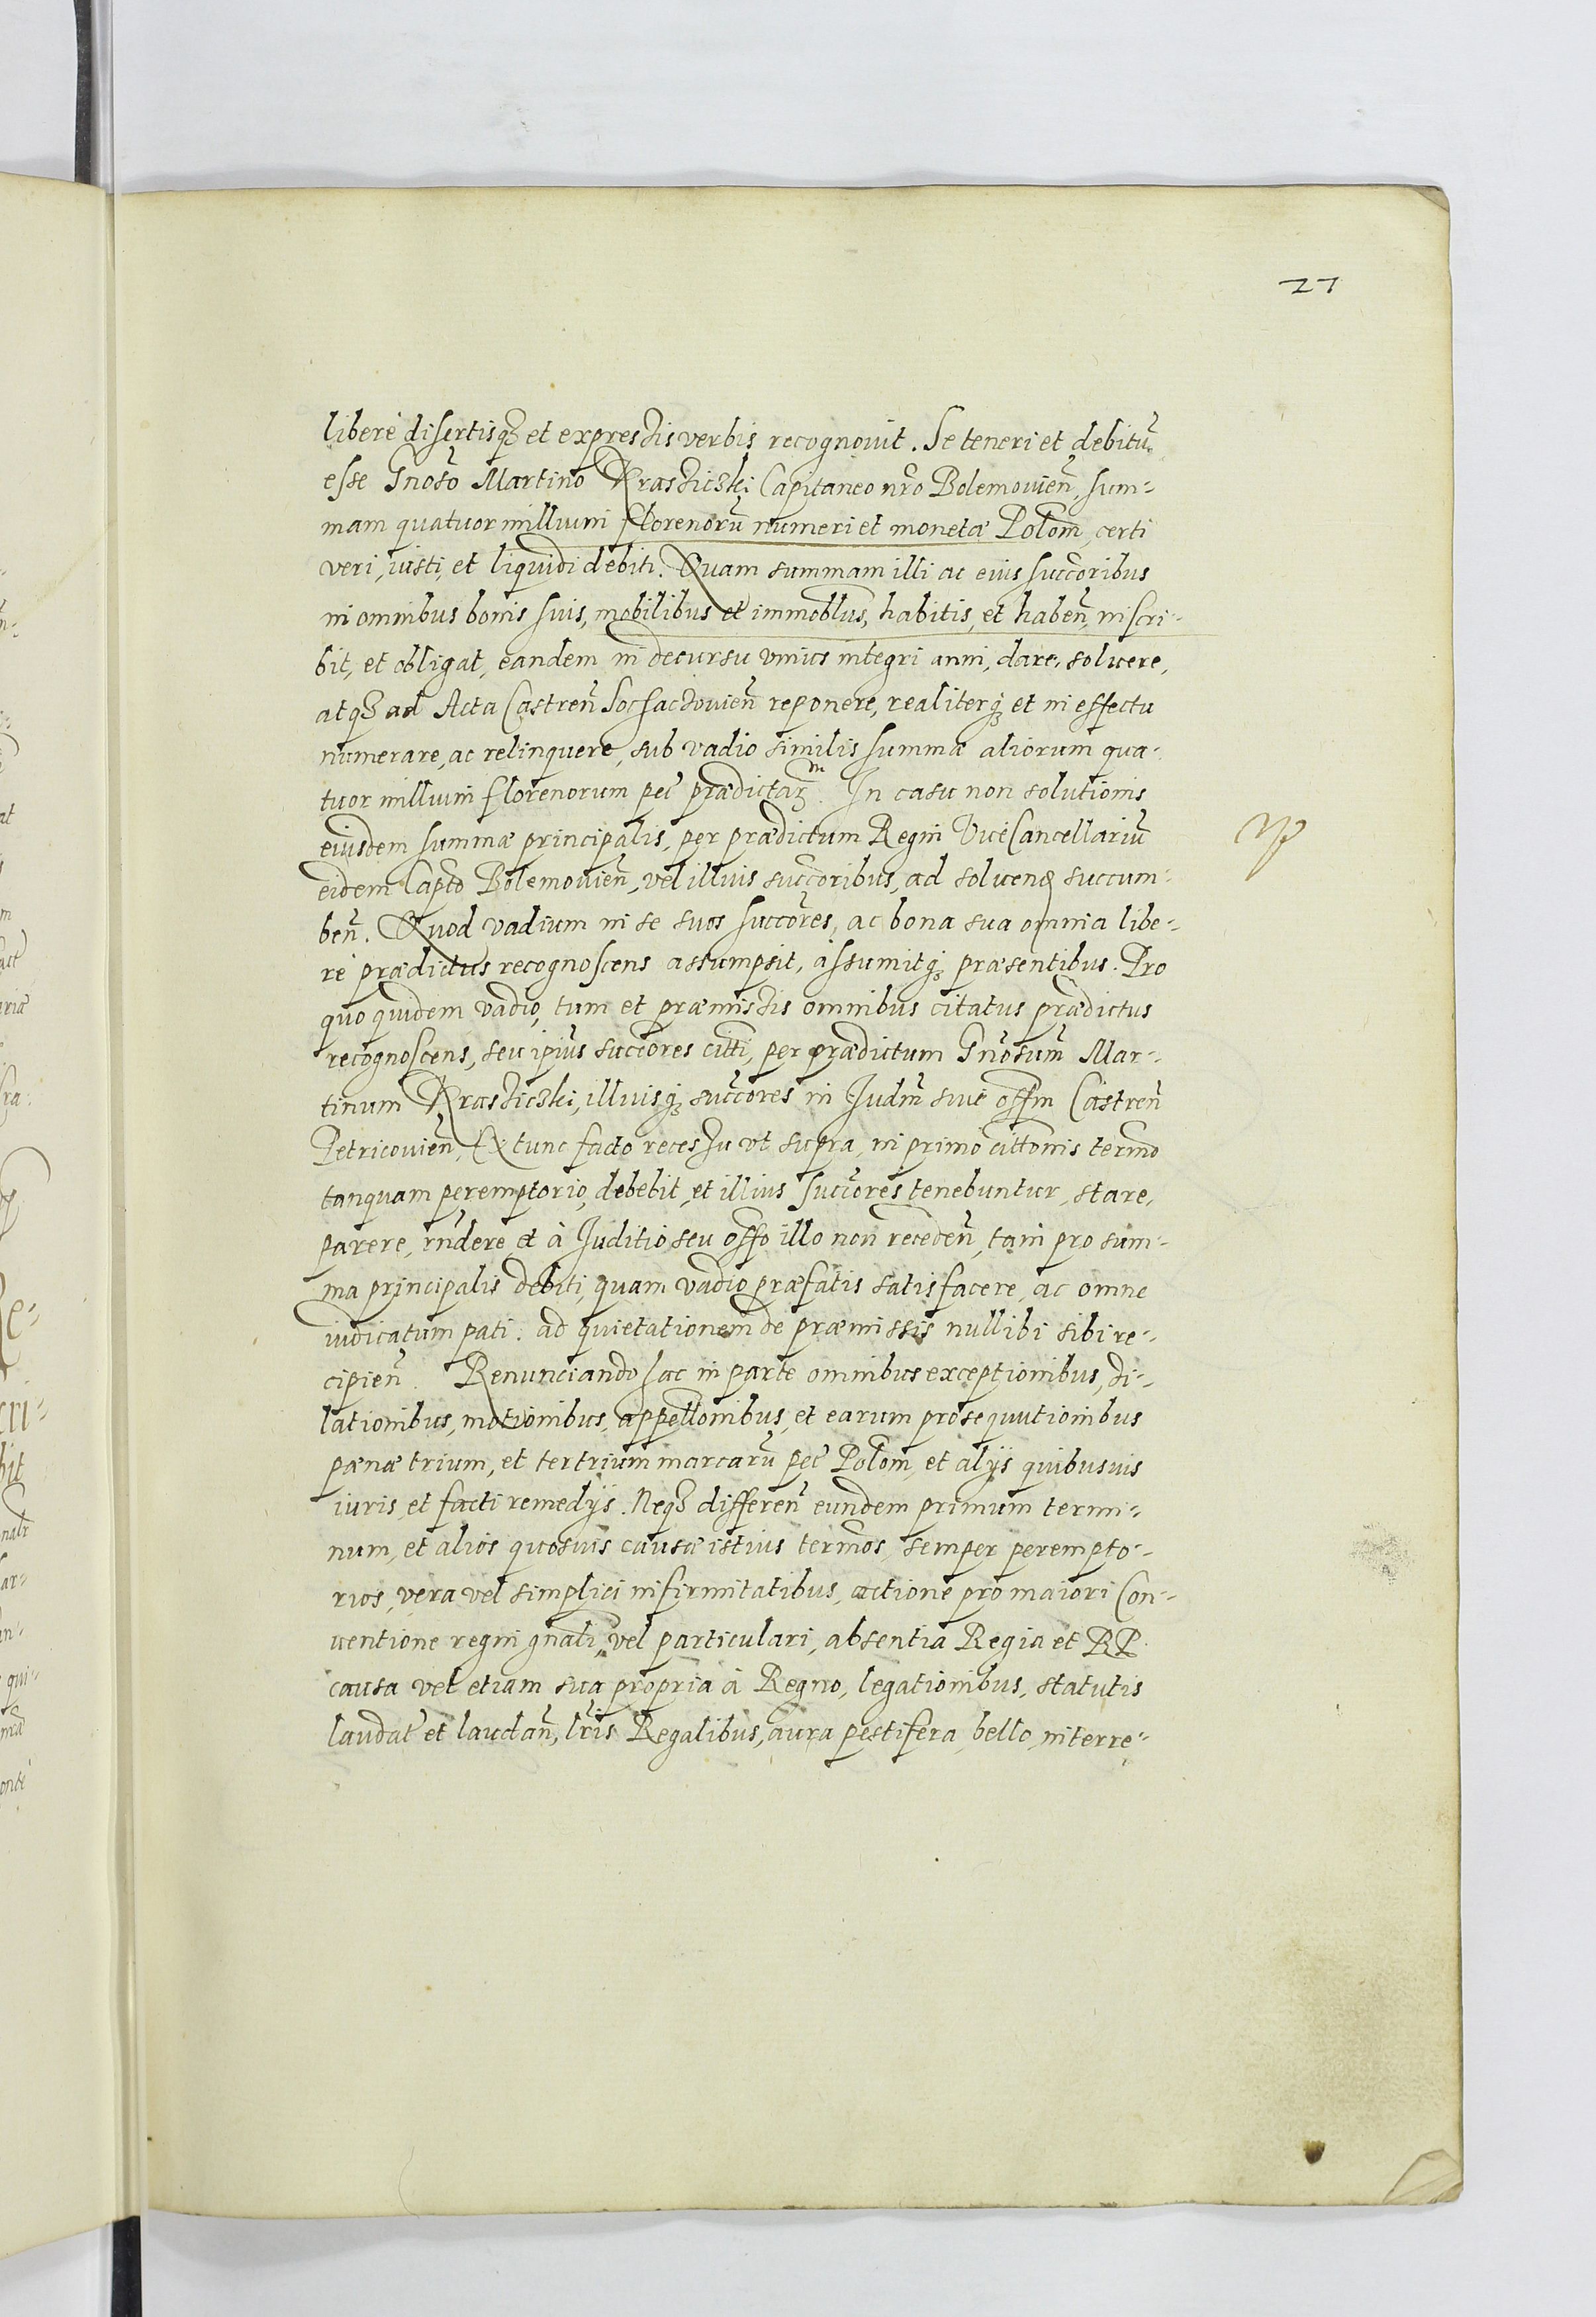 27
liberè disertisq3 et expressis verbis recognovit. Se teneri et debitũ
esse Gnoso Martino Krassicski Capitaneo nro Bolemovien̄, sum-
mam quatuor millium florenorũ numeri et monetæ Polon̄, certi
veri, iusti, et liquidi debiti. Quam summam illi ac eius succoribus
in omnibus bonis suis, mobilibus et immoblus, habitis, et haben̄, inscri-
bit, et obligat, eandem in decursu unius integri anni, dare, soluere,
atq3 ad Acta Castren̄ Sochaczovien̄ reponere, realiterq3 et in effectu
numerare, ac relinquere, sub vadio similis summæ aliorum qua-
tuor millium florenorum pec̄ prædictar̄. In casu non solutionis
eiusdem summæ principalis, per prædictum Regni ViceCancellariũ
eidem Capto Bolemovien̄, vel illius succoribus, ad soluend succum-
ben̄. Quod vadium in se suos succores, ac bona sua omnia libe-
rè prædictus recognoscens assumpsit, assumitq3 præsentibus. Pro
quo quidem vadio, tum et præmissis omnibus citatus prædictus
recognoscens, seu ipius succores citti, per prædictum Gnosum Mar-
tinum Krassicski, illiusq3 succores in Judm̄ sive offm Castren̄
Petricovien̄, Ex tunc facto recessu ut supra, in primo cittonis termo
tanquam peremptorio, debebit, et illius succores tenebuntur, stare,
parere, rndere, et à Juditio seu offo illo non receden̄, tam pro sum-
ma principalis debiti, quam vadio præfatis satisfacere, ac omne
iudicatum pati. ad quietationem de præmissis nullibi sibi re-
cipien̄. Renunciando hac in parte omnibus exceptionibus, di-
lationibus, motionibus, appellonibus, et earum prosequutionibus
pænæ trium, et tertrium marcarũ pec̄ Polon̄, et alijs quibusuis
iuris, et facti remedijs. Neq3 differen̄ eundem primum termi-
num, et alios quosuis causæ istius termos, semper perempto-
rios, vera vel simplici infirmitatibus, actione pro maiori Con-
uentione regni gnali, vel particulari, absentia Regia et RP.
causa vel etiam sua propria à Regno, legationibus, statutis
laudat̄ et laudan̄, lris Regalibus, aura pestifera, bello, interre-